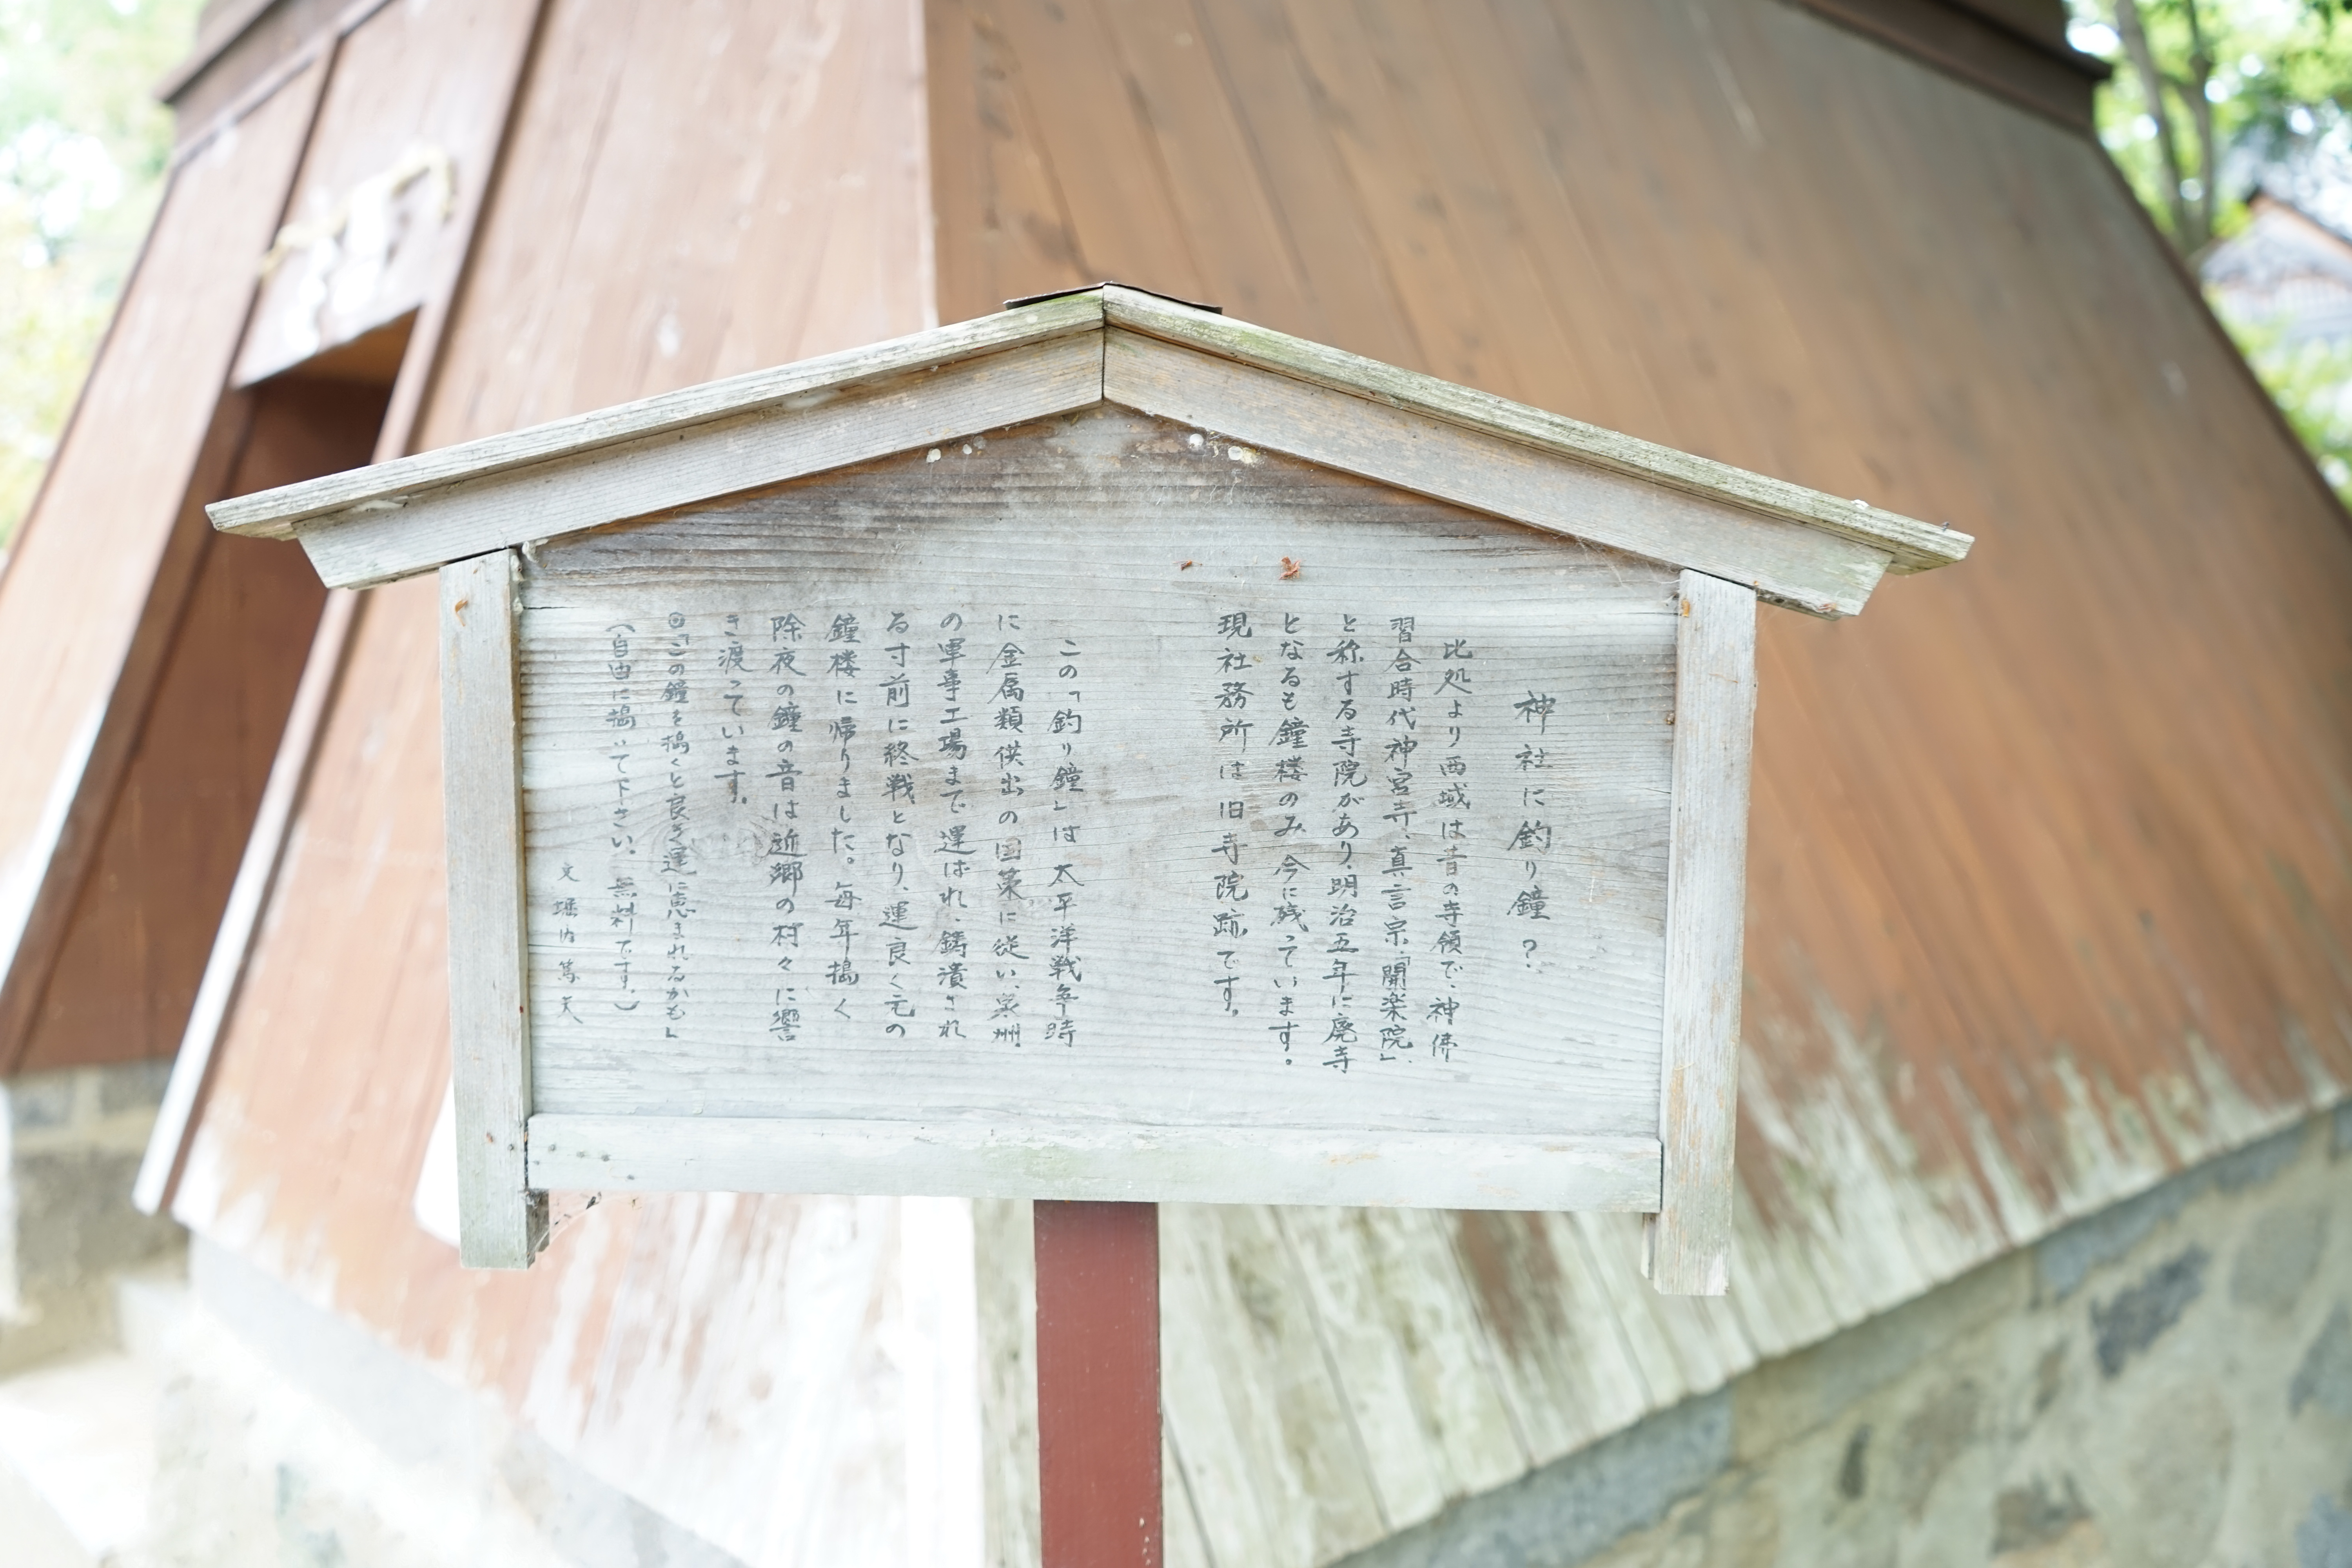 神社に釣り鐘？
此処より西域は昔の寺領で、神佛
習合時代神宮寺、真言宗、「開楽院」
と称する寺院があり、明治五年に廃寺
となるも鐘楼のみ今に残っています。
現社務所は旧寺院跡です。
この「釣り鐘」は太平洋戦争時
に金属類供出の国策に従い、泉州
の軍事工場まで運ばれ、鋳潰され
る寸前に終戦となり、運良く元の
鐘楼に帰りました。毎年搗く
除夜の鐘の音は近郷の村々に響
き渡っています。
◎「この鐘を搗くと良き運に恵まれるかも」
（自由に搗いて下さい。無料です。）
文 堀内篤天